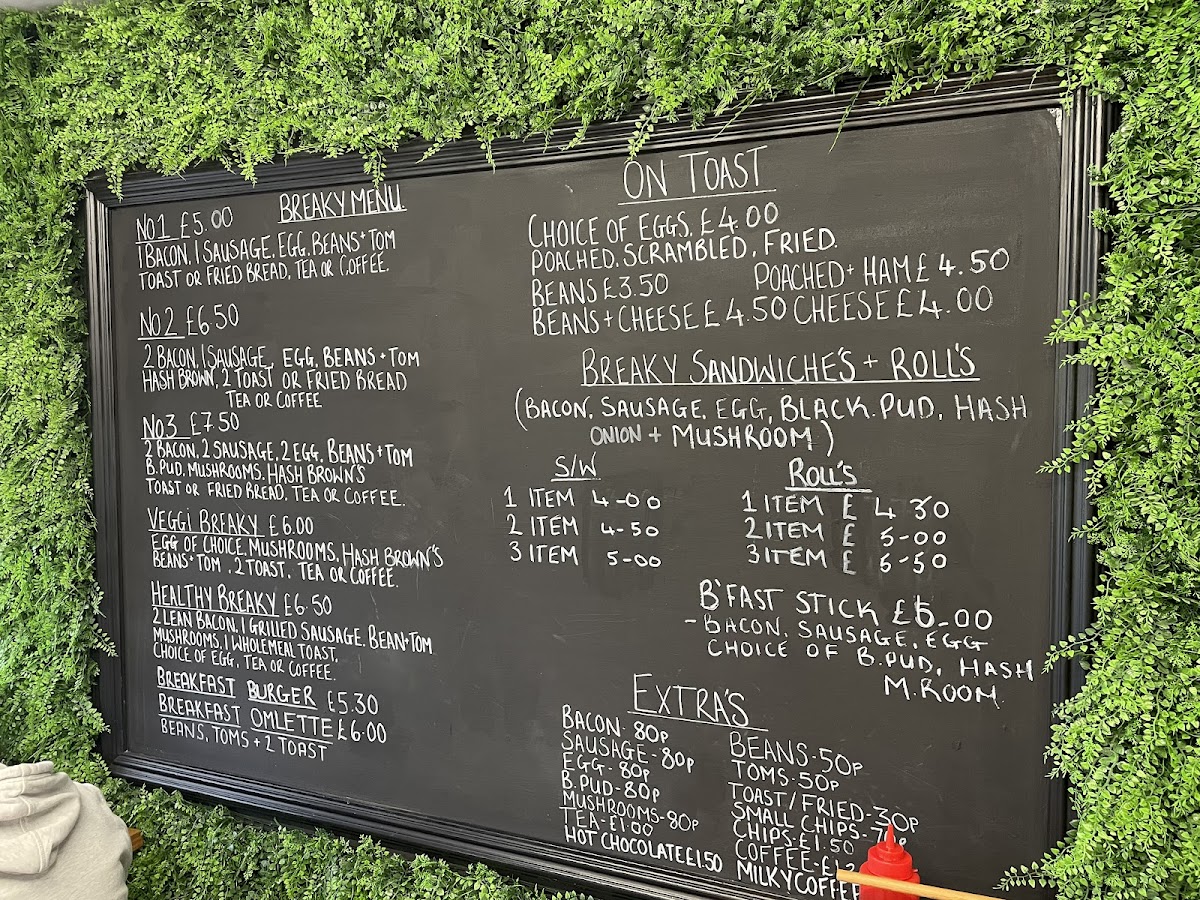 BREAKY MENU
No1 £5.00
1 BACON, 1 SAUSAGE, EGG, BEANS + TOM
TOAST OR FRIED BREAD, TEA OR COFFEE.
No2 £6.50
2 BACON, 1 SAUSAGE, EGG, BEANS + TOM
HASH BROWN, 2 TOAST OR FRIED BREAD
TEA OR COFFEE
No3 £7.50
2 BACON, 2 SAUSAGE, 2 EGG, BEANS + TOM
B.PUD, MUSHROOMS, HASH BROWN'S
TOAST OR FRIED BREAD, TEA OR COFFEE.
VEGGI BREAKY £6.00
EGG OF CHOICE, MUSHROOMS, HASH BROWN'S
BEANS + TOM, 2 TOAST, TEA OR COFFEE.
HEALTHY BREAKY £6.50
2 LEAN BACON, 1 GRILLED SAUSAGE, BEAN+TOM
MUSHROOMS, 1 WHOLEMEAL TOAST,
CHOICE OF EGG, TEA OR COFFEE.
BREAKFAST BURGER £5.30
BREAKFAST OMLETTE £6.00
BEANS, TOMS + 2 TOAST
ON TOAST
CHOICE OF EGGS, £4.00
POACHED, SCRAMBLED, FRIED.
BEANS £3.50 POACHED + HAM £4.50
BEANS + CHEESE £4.50 CHEESE £4.00
BREAKY SANDWICHE'S + ROLL'S
(BACON, SAUSAGE, EGG, BLACK.PUD, HASH
ONION + MUSHROOM)
S/W
1 ITEM 4-00
2 ITEM 4-50
3 ITEM 5-00
ROLL'S
1 ITEM £ 4 30
2 ITEM £ 5-00
3 ITEM £ 5-50
B'FAST STICK £6.00
- BACON, SAUSAGE, EGG
CHOICE OF B.PUD, HASH
M.ROOM
EXTRA'S
BACON- 80p
SAUSAGE-80p
EGG-80p
B.PUD-80p
MUSHROOMS-80p
TEA-£1.00
HOT CHOCOLATE £1.50
BEANS-50p
TOMS-50p
TOAST/FRIED-30p
SMALL CHIPS-
CHIPS-£1.50
COFFEE-
MILKY COFFEE